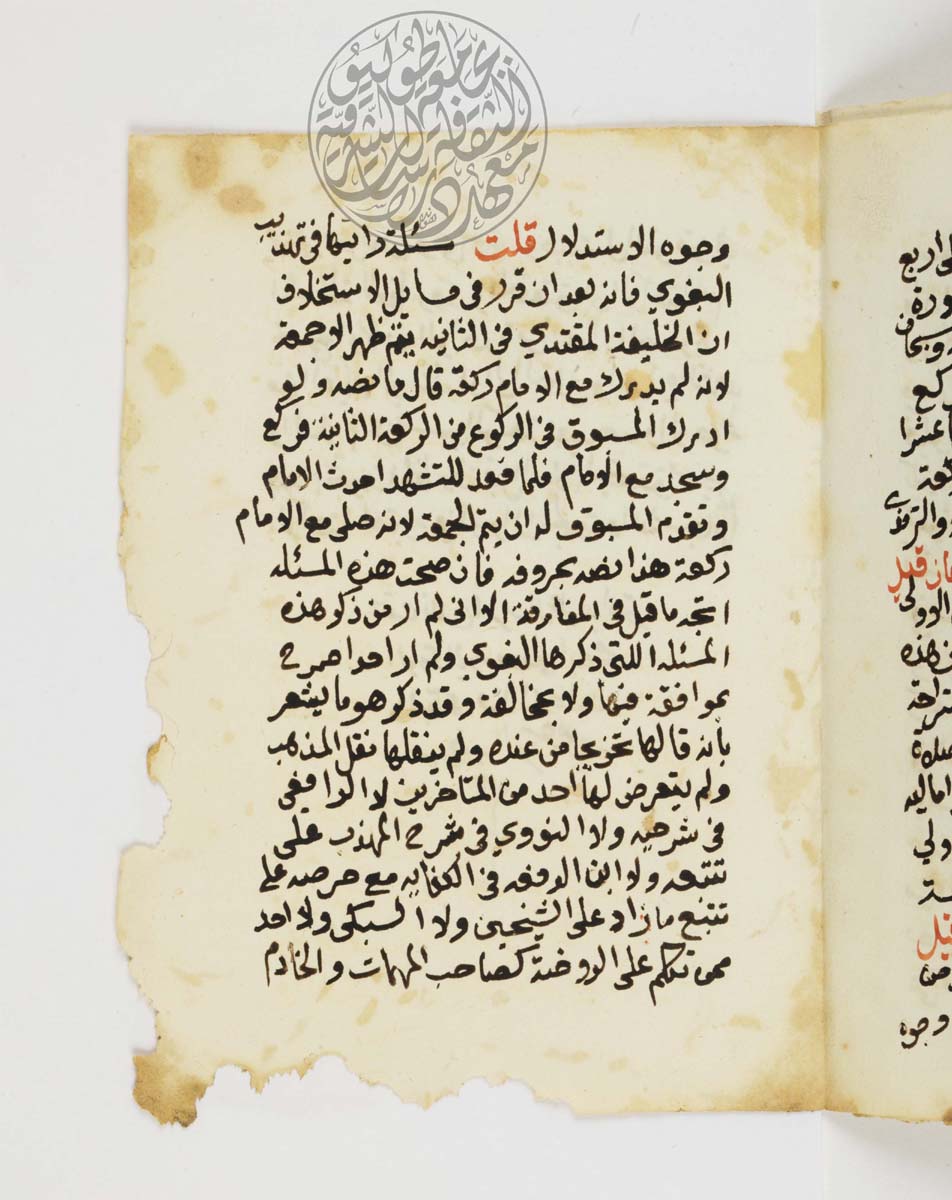 وجوه الاستدلال قلت مسئلة رايتها في تهذيب
البغوي فانه بعد ان قرر في مسايل الاستخلاف
ان الخليفة المقتدي في الثانيه يتم ظهر الا جمعة
لانه لم يدرك مع الامام ركعة قال ما نصه ولو
ادرك المسبوق في الركوع من الركعة الثانية فركع
وسجد مع الامام فلما قعد للتشهد احدث الامام
وتقدم المسبوق له ان يتم الجمعة لانه صلى مع الامام
ركعة هذا نصه بحروفه فان صحت هذه المسئله
اتجه ما قيل في المفارقة الا انى لم ار من ذكر هذه
المسئله اللتى ذكرها البغوي ولم ار احدا صرح
بموافقة فيها ولا بمخالفة وقد ذكر هو ما يشعر
بانه قالها تخريجا من عنده ولم ينقلها نقل المذهب
ولم يتعرض لها احد من المتاخرين لا الرافعي
في شرحيه ولا النووي في شرح المهذب على
تتبعه ولا ابن الرفعه في الكفايه مع حرصه على
تتبع ما زاد على الشيخين ولا السبكى ولا احد
ممن تكلم على الروضة كصاحب المهمات والخادم